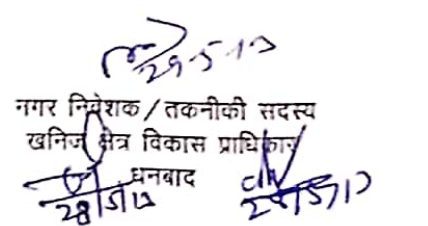 29-5-13
नगर निवेशक / तकनीकी सदस्य
खनिज क्षेत्र विकास प्राधिकार
धनबाद
28/5/13